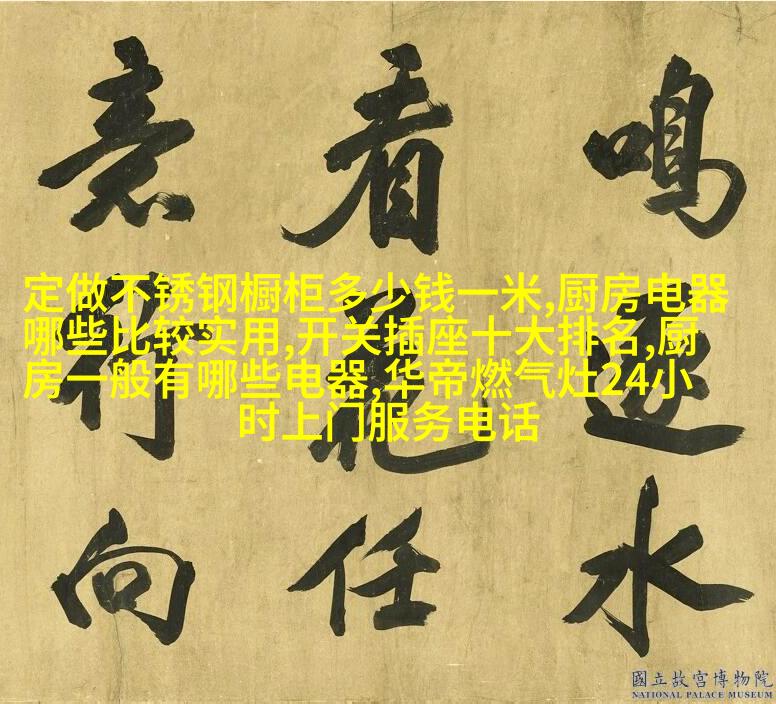 鳴逐水
看花任
意行向
定做不锈钢橱柜多少钱一米,厨房电器
哪些比较实用,开关插座十大排名,厨
房一般有哪些电器,华帝燃气灶24小
时上门服务电话
國立故宮博物院
NATIONAL PALACE MUSEUM